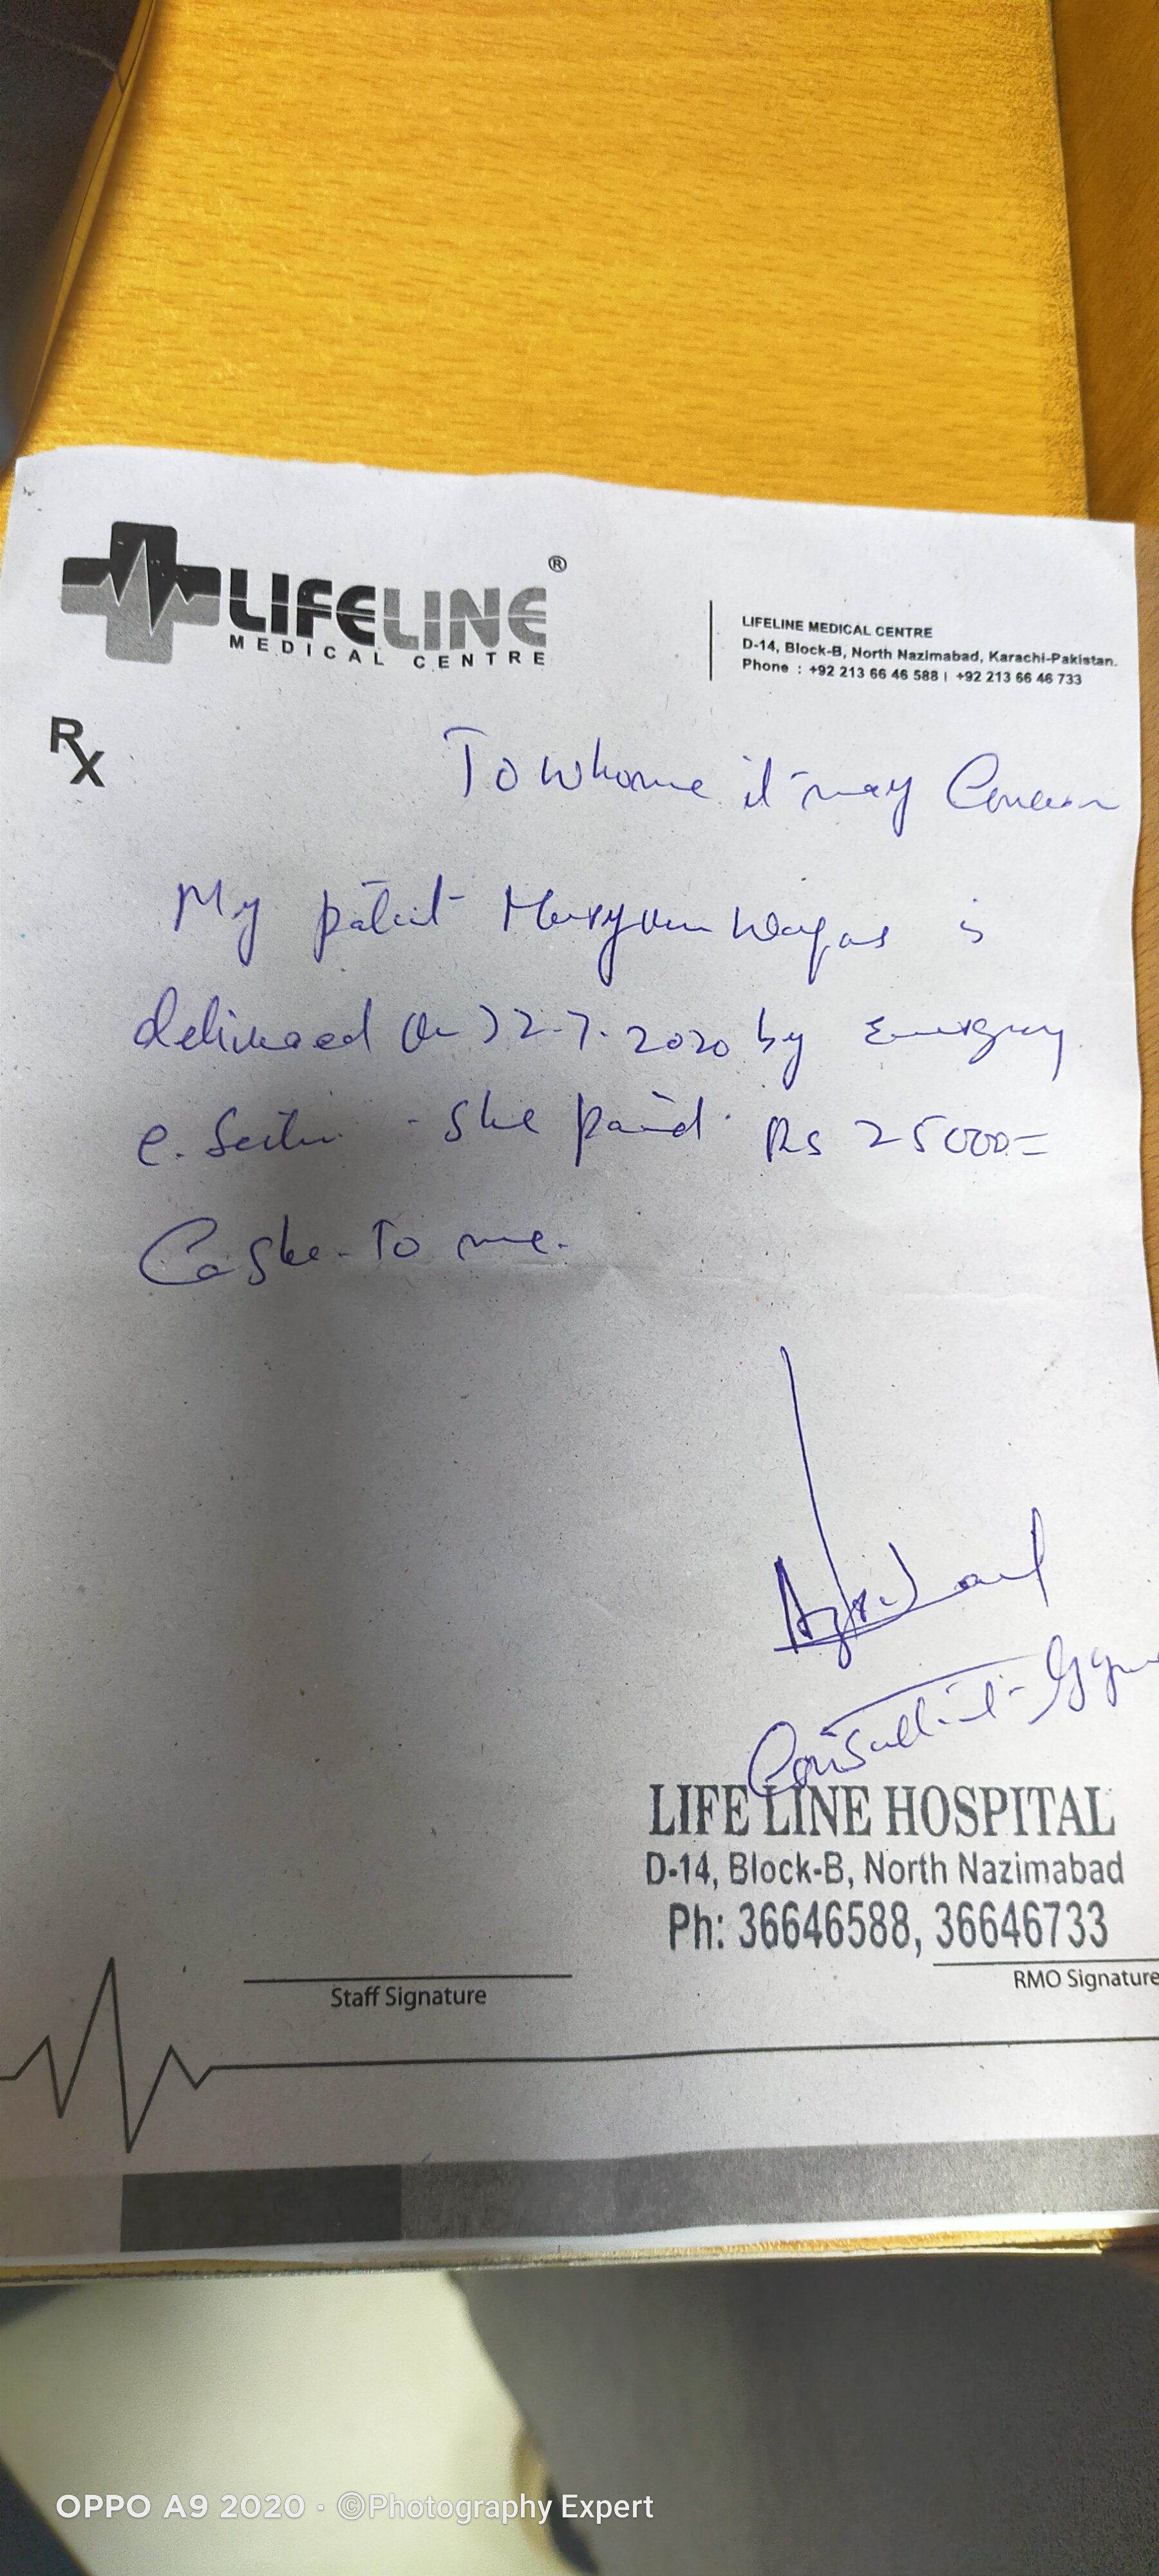 LIFELINE ®
MEDICAL CENTRE
LIFELINE MEDICAL CENTRE
D-14, Block-B, North Nazimabad, Karachi-Pakistan.
Phone : +92 213 66 46 588 | +92 213 66 46 733
Rx
To whome it may Concern
My patient Maryum Waqas is
delivered on 22.7.2020 by Emergency
c. Section. She paid Rs 25000=
Cashe to me.
Consultant Gynae
LIFE LINE HOSPITAL
D-14, Block-B, North Nazimabad
Ph: 36646588, 36646733
Staff Signature
RMO Signature
OPPO A9 2020 · ©Photography Expert